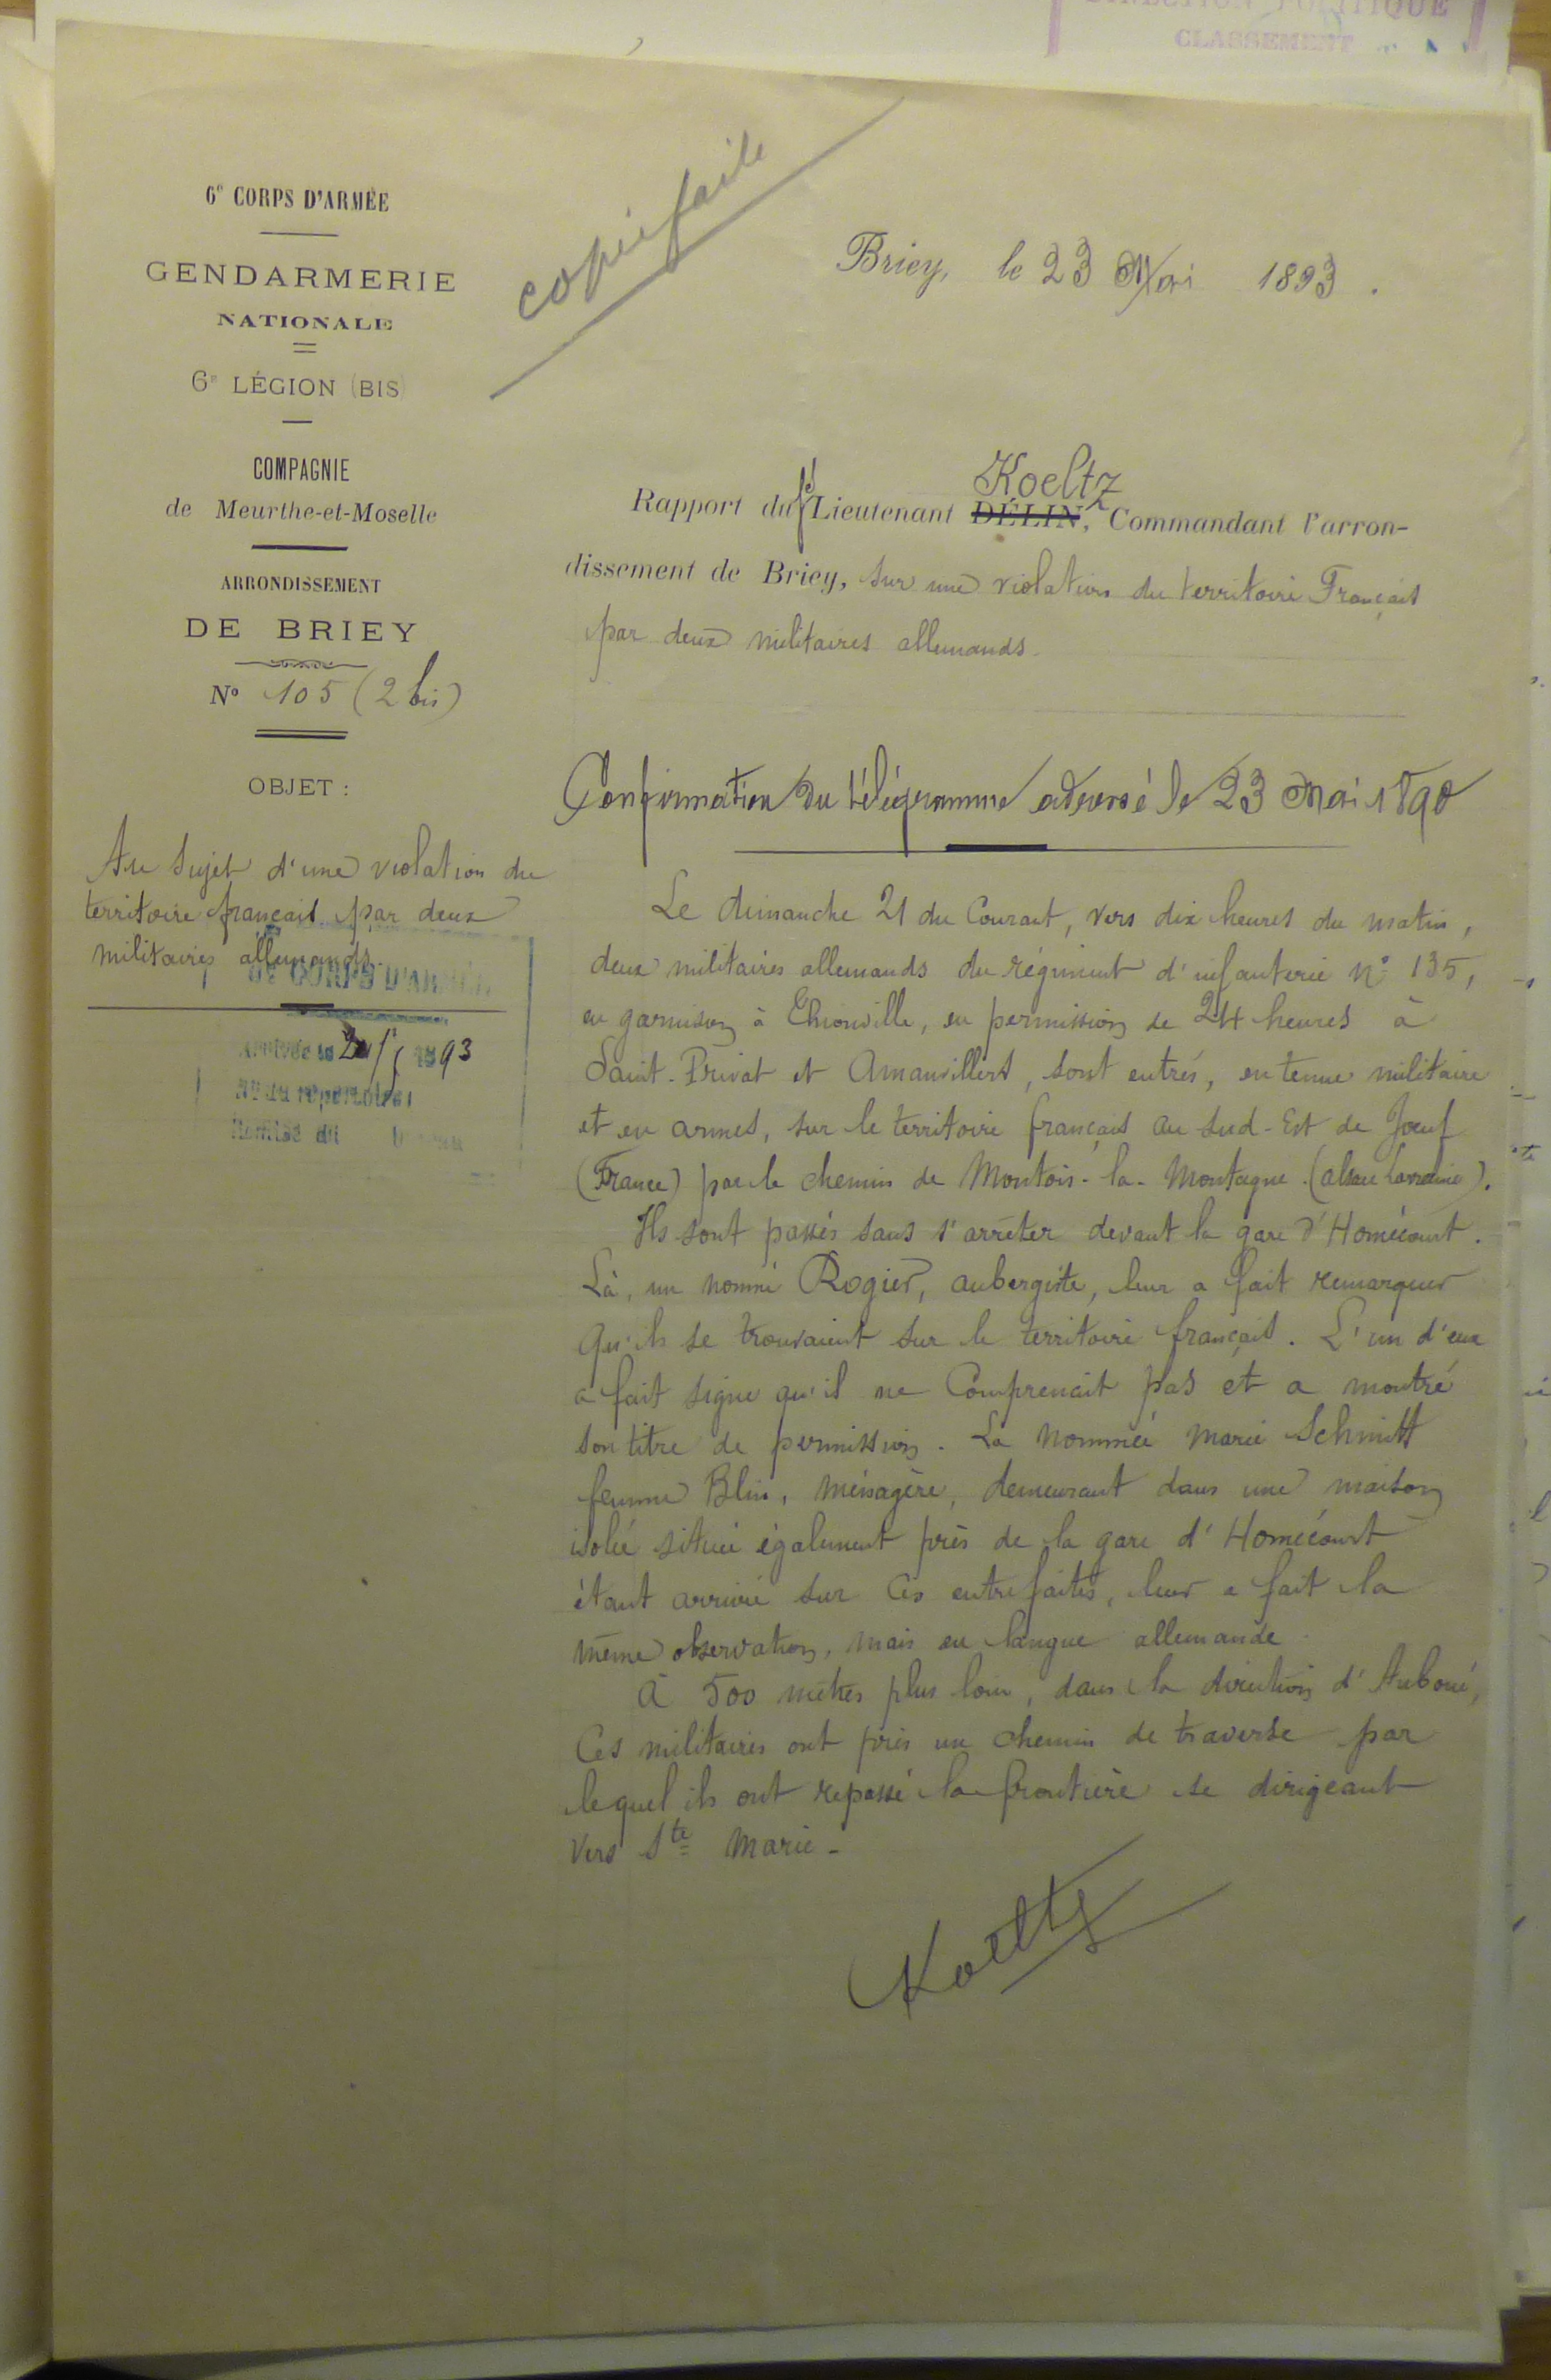 DIRECTION POLITIQUE
CLASSEMENT
6e CORPS D'ARMÉE
GENDARMERIE
NATIONALE
6e LÉGION (BIS)
COMPAGNIE
de Meurthe-et-Moselle
ARRONDISSEMENT
DE BRIEY
No 105 (2 bis)
OBJET :
Au sujet d'une violation du
territoire français par deux
militaires allemands.
6e CORPS D'ARMÉE
Arrivée le 1893
No du répertoire
Remise du
copie faite
Briey, le 23 Mai 1893.
Koeltz
Rapport du Lieutenant DÉLIN, Commandant l'arron-
dissement de Briey, sur une violation du territoire Français
par deux militaires allemands.
Confirmation du télégramme adressé le 23 Mai 1890
Le dimanche 21 du Courant, vers dix heures du matin,
deux militaires allemands du régiment d'infanterie No 135,
en garnison à Thionville, en permission de 24 heures à
Saint-Privat et Amanvillers, sont entrés, en tenue militaire
et en armes, sur le territoire français au Sud-Est de Joeuf
(France) par le chemin de Montois-la-Montagne (alsace Lorraine).
Ils sont passés sans s'arrêter devant la gare d'Homécourt.
Là, un nommé Rogier, aubergiste, leur a fait remarquer
qu'ils se trouvaient sur le territoire français. L'un d'eux
a fait signe qu'il ne Comprenait pas et a montré
son titre de permission. La nommée Marie Schmitt
femme Blin, ménagère, demeurant dans une maison
isolée située également près de la gare d'Homécourt
étant arrivée sur ces entrefaites, leur a fait la
même observation, mais en langue allemande.
À 500 mètres plus loin, dans la direction d'Auboué,
Ces militaires ont pris un chemin de traverse par
lequel ils ont repassé la frontière se dirigeant
vers Ste Marie.
Koeltz